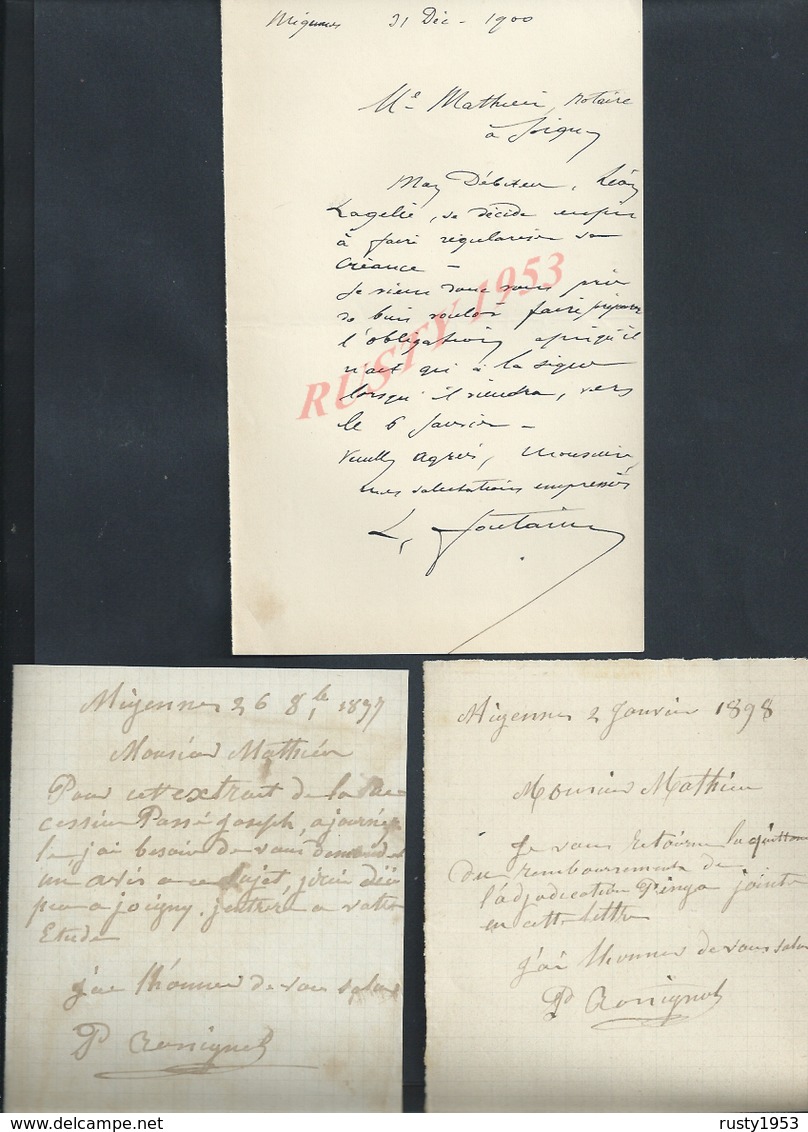 Migennes 31 Déc - 1900
Me Mathieu, notaire
à Joigny
Mon Débiteur, Léon
Lagelié, se décide enfin
à faire régulariser sa
créance -
Je viens donc vous prier
de bien vouloir faire préparer
l'obligation afin qu'il
n'ait qu'à la signer
lorsqu'il viendra, vers
le 6 Janvier -
Veuillez agréer, Monsieur
mes salutations empressées
L. Fontaine
RUSTY 1953
Migennes 26 8bre 1897
Monsieur Mathieu
Pour cet extrait de la suc
cession Passé Joseph, ajourné
le j'ai besoin de vous demander
un avis a ce sujet, j'irai
peu a joigny. j'entrerai a votre
Etude
j'ai l'honneur de vous saluer
P Rossignol
Migennes 2 Janvier 1898
Monsieur Mathieu
Je vous retourne la quittance
du remboursement de
l'adjudication jointe
en cette lettre
J'ai l'honneur de vous saluer
P Rossignol
www.delcampe.net
rusty1953